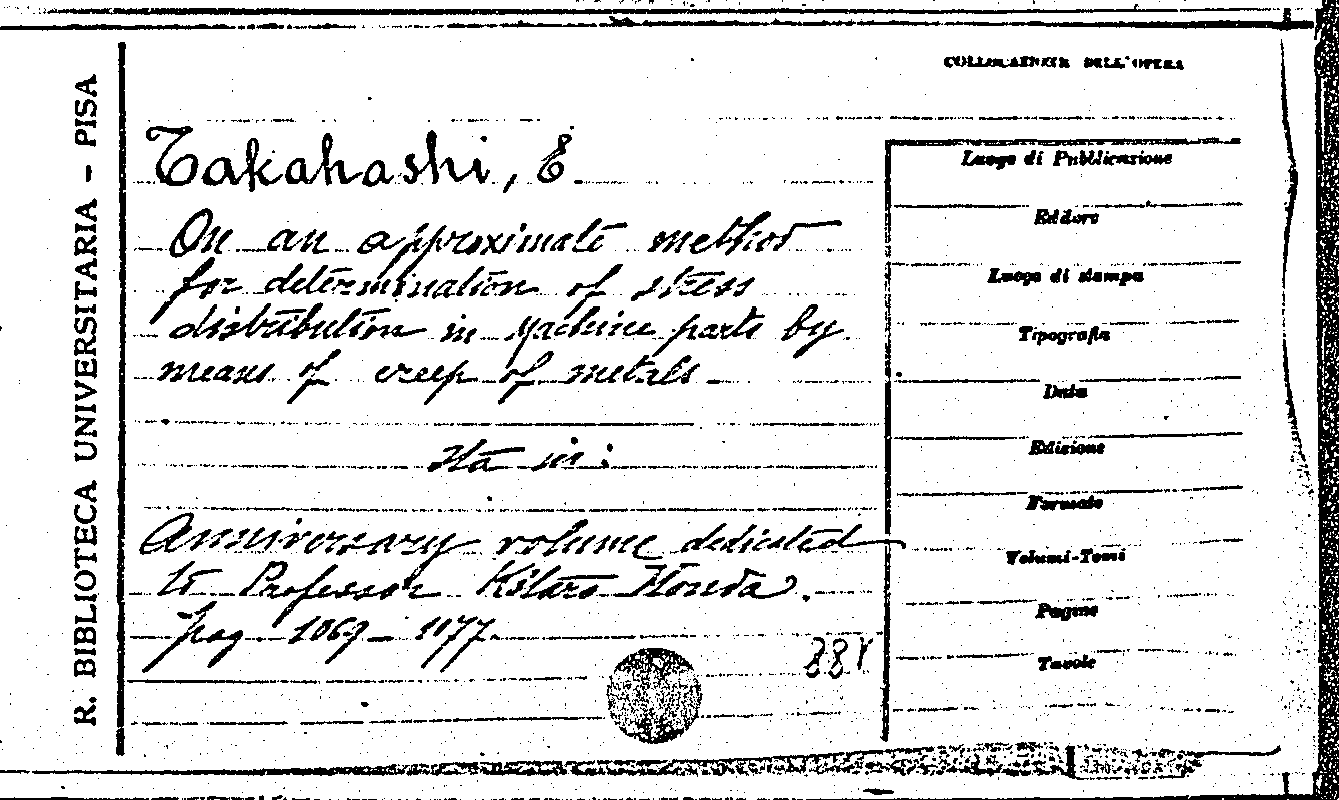 R. BIBLIOTECA UNIVERSITARIA - PISA
COLLOCAZIONE DELL'OPERA
Takahashi, E.
On an approximate method
for determination of stress
distribution in machine parts by
means of creep of metals.
Sta in:
Anniversary volume dedicated
to Professor Kôtaro Honda.
pag. 1069-1077.
Luogo di Pubblicazione
Editore
Luogo di stampa
Tipografia
Data
Edizione
Formato
Volumi-Tomi
Pagine
Tavole